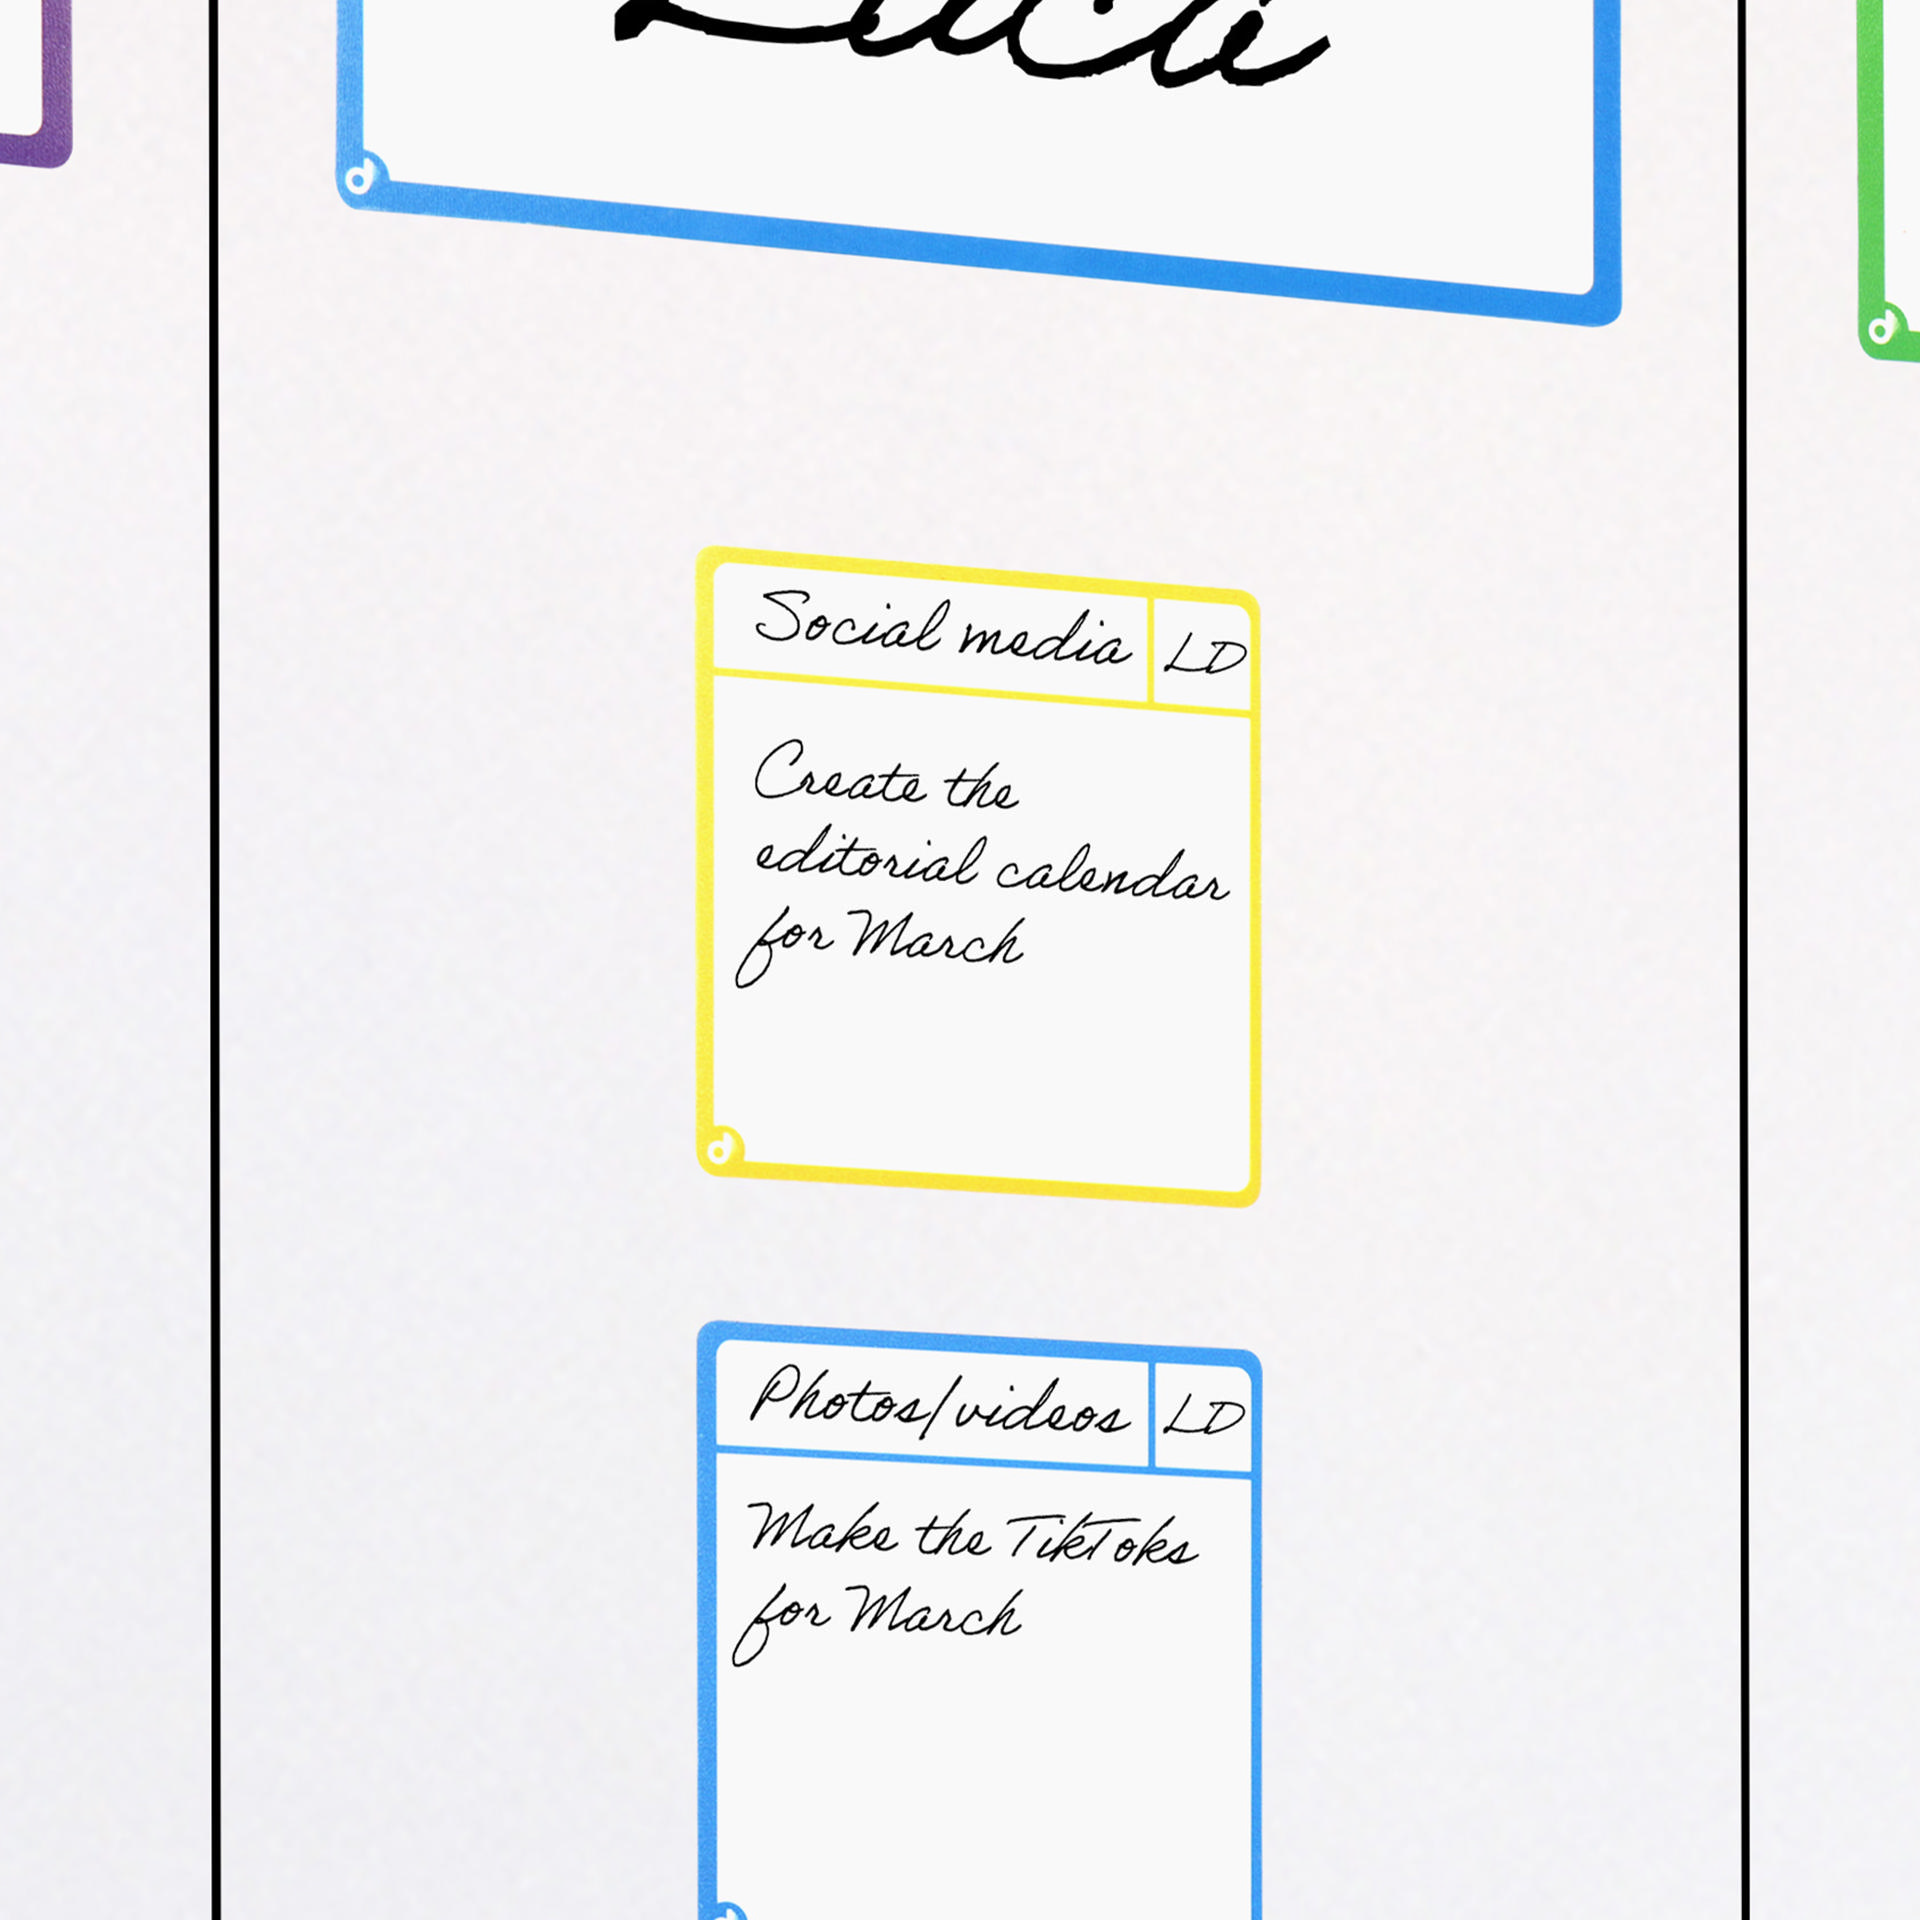 Luca
Social media LD
Create the
editorial calendar
for March
Photos/videos LD
Make the TikToks
for March